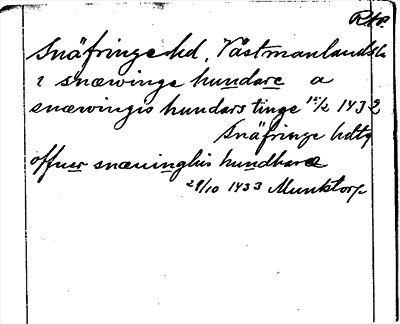 RAp.
Snäfringe hd, Västmanlands la
i snæwinge hundare a
snæwingis hundars tinge 15/2 1432
Snäfringe hdtg
offuer snæuinghis hundhare
29/10 1433 Munktorp